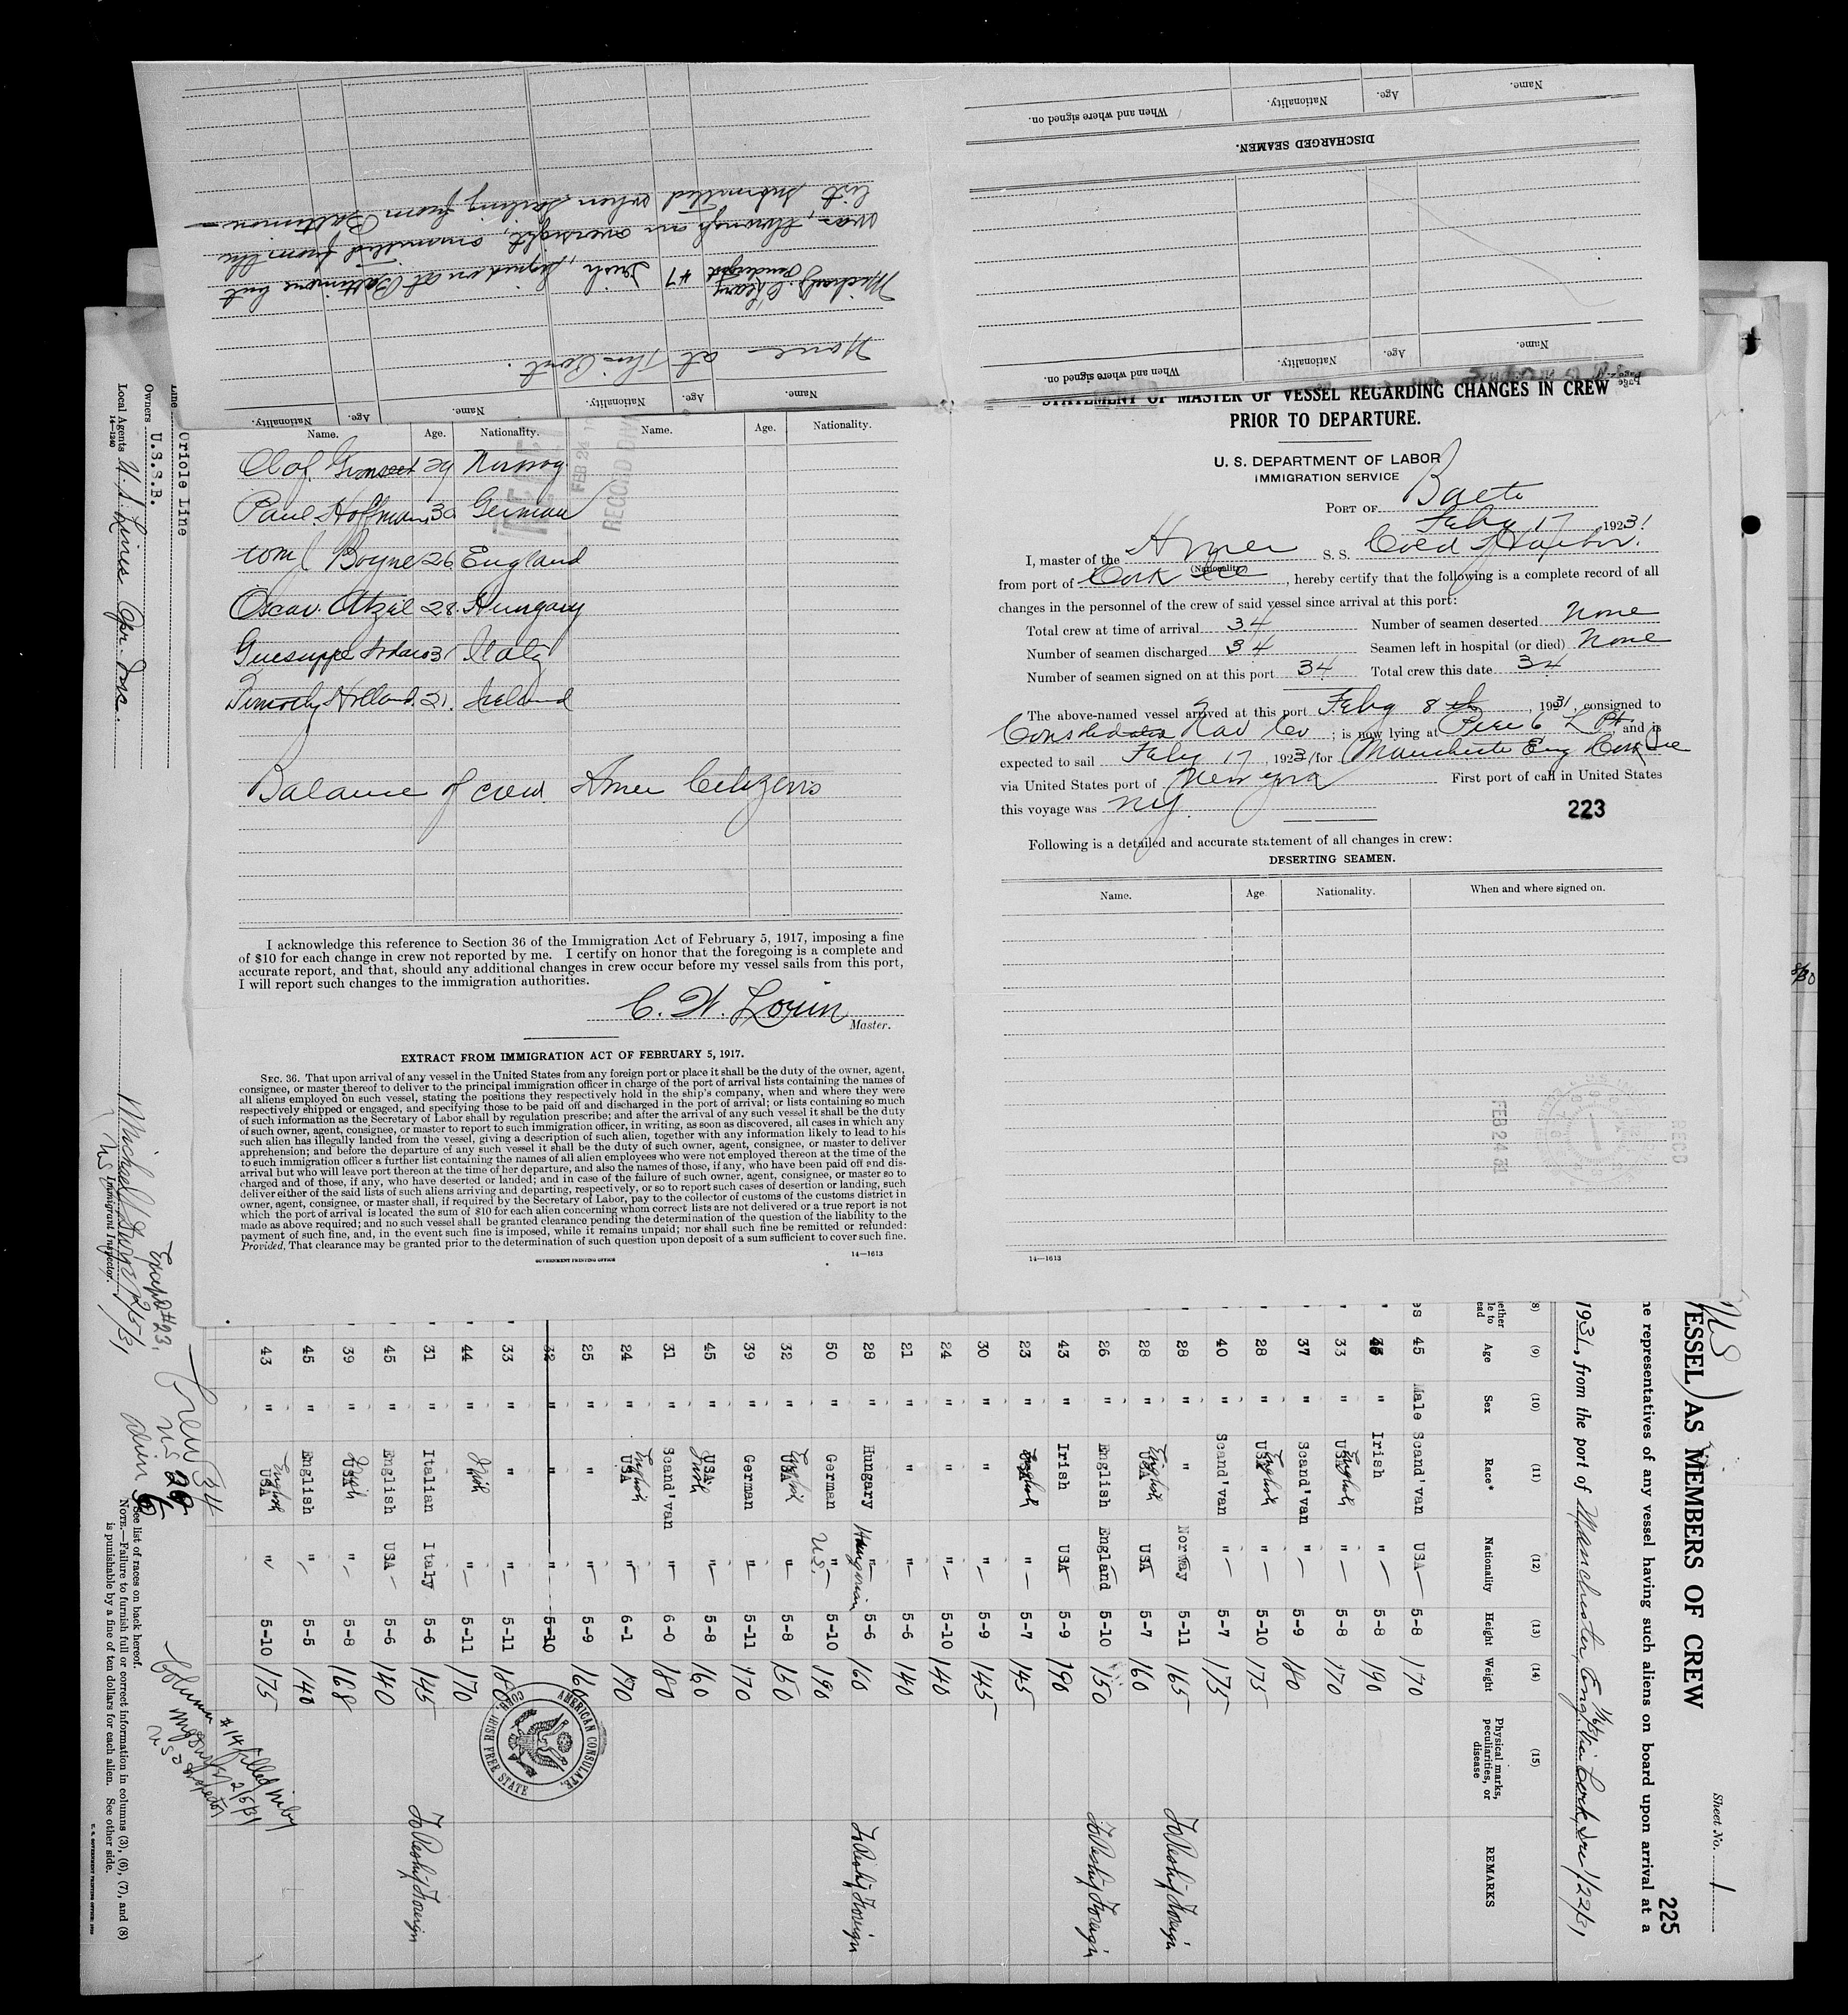 Name. Age. Nationality. When and where signed on.
DISCHARGED SEAMEN.
Name. Age. Nationality. When and where signed on.
Name. Age. Nationality. Name. Age. Nationality.
None at this Port.
Michael J. O'Leary 47 Irish, signed on at Baltimore but
was, through an oversight, ommitted from the
list submitted when sailing from Baltimore
Name. Age. Nationality. Name. Age. Nationality.
Olof 29 Norway
Paul Hoffman 30 German
Wm J Boyne 26 England
Oscar 28 Hungary
31 Italy
Timothy Holland 21. Ireland
Balance of crew Amer Citizens
FEB 24
RECORD DIV
I acknowledge this reference to Section 36 of the Immigration Act of February 5, 1917, imposing a fine
of $10 for each change in crew not reported by me. I certify on honor that the foregoing is a complete and
accurate report, and that, should any additional changes in crew occur before my vessel sails from this port,
I will report such changes to the immigration authorities.
C. W.
Master.
EXTRACT FROM IMMIGRATION ACT OF FEBRUARY 5, 1917.
SEC. 36. That upon arrival of any vessel in the United States from any foreign port or place it shall be the duty of the owner, agent,
consignee, or master thereof to deliver to the principal immigration officer in charge of the port of arrival lists containing the names of
all aliens employed on such vessel, stating the positions they respectively hold in the ship's company, when and where they were
respectively shipped or engaged, and specifying those to be paid off and discharged in the port of arrival; or lists containing so much
of such information as the Secretary of Labor shall by regulation prescribe; and after the arrival of any such vessel it shall be the duty
of such owner, agent, consignee, or master to report to such immigration officer, in writing, as soon as discovered, all cases in which any
such alien has illegally landed from the vessel, giving a description of such alien, together with any information likely to lead to his
apprehension; and before the departure of any such vessel it shall be the duty of such owner, agent, consignee, or master to deliver
to such immigration officer a further list containing the names of all alien employees who were not employed thereon at the time of the
arrival but who will leave port thereon at the time of her departure, and also the names of those, if any, who have been paid off and dis-
charged and of those, if any, who have deserted or landed; and in case of the failure of such owner, agent, consignee, or master so to
deliver either of the said lists of such aliens arriving and departing, respectively, or so to report such cases of desertion or landing, such
owner, agent, consignee, or master shall, if required by the Secretary of Labor, pay to the collector of customs of the customs district in
which the port of arrival is located the sum of $10 for each alien concerning whom correct lists are not delivered or a true report is not
made as above required; and no such vessel shall be granted clearance pending the determination of the question of the liability to the
payment of such fine, and, in the event such fine is imposed, while it remains unpaid; nor shall such fine be remitted or refunded:
Provided, That clearance may be granted prior to the determination of such question upon deposit of a sum sufficient to cover such fine.
GOVERNMENT PRINTING OFFICE 14—1613
STATEMENT OF MASTER OF VESSEL REGARDING CHANGES IN CREW
PRIOR TO DEPARTURE.
U. S. DEPARTMENT OF LABOR
IMMIGRATION SERVICE
PORT OF Balto
Feby 17 1931
I, master of the Amer S. S. Cold Harbor
(Nationality)
from port of Cork Ire, hereby certify that the following is a complete record of all
changes in the personnel of the crew of said vessel since arrival at this port:
Total crew at time of arrival 34 Number of seamen deserted None
Number of seamen discharged 34 Seamen left in hospital (or died) None
Number of seamen signed on at this port 34 Total crew this date 34
The above-named vessel arrived at this port Feby 8th, 1931, consigned to
Consolidated Nav Co; is now lying at Pier 6 L Pt and is
expected to sail Feby 17, 1931 for Manchester Eng Cork Ire
via United States port of New York First port of call in United States
this voyage was NY.
223
Following is a detailed and accurate statement of all changes in crew:
DESERTING SEAMEN.
Name. Age. Nationality. When and where signed on.
FEB 24 31
RECD
14—1613
Line Oriole Line
Owners U.S.S.B.
Local Agents U.S. Lines Opr. Inc.
14—1240
Immigrant Inspector.
VESSEL) AS MEMBERS OF CREW
Sheet No. 1
225
the representatives of any vessel having such aliens on board upon arrival at a
1931, from the port of Manchester, Eng. via Cork, Ire 1/22/31
(8) (9) (10) (11) (12) (13) (14) (15)
Age Sex Race* Nationality Height Weight Physical marks, peculiarities, or disease REMARKS
45 Male Scand'van USA 5-8 170
" Irish " 5-8 190
33 " English USA " 5-8 170
37 " Scand'van " 5-9 180
28 " English USA " 5-10 175
40 " Scand'van " 5-7 175
28 " " Norway 5-11 165 To Reship Foreign
28 " English USA USA 5-7 160
26 " English England 5-10 150 To Reship Foreign
43 " Irish USA 5-9 190
23 " English " 5-7 145
30 " " " 5-9 145
24 " " " 5-10 140
21 " " " 5-6 140
28 " Hungary Hungarian 5-6 160 To Reship Foreign
50 " German " U.S. 5-10 190
32 " English USA " 5-8 150
39 " German " 5-11 170
45 " USA Irish " 5-8 160
31 " Scand'van " 6-0 180
24 " English USA " 6-1 170
25 " " " 5-9 160
32 " " " 5-10
33 " " " 5-11 180
44 " Irish " 5-11 170
31 " Italian Italy 5-6 145 To Reship Foreign
45 " English USA 5-6 140
39 " Irish USA " 5-8 168
45 " English " 5-5 140
43 " English USA " 5-10 175
AMERICAN CONSULATE.
CORK, IRISH FREE STATE
Crew 34
US 28
alien 6
Column #14 filled in by
US Inspector
*See list of races on back hereof.
NOTE.—Failure to furnish full or correct information in columns (3), (6), (7), and (8)
is punishable by a fine of ten dollars for each alien. See other side.